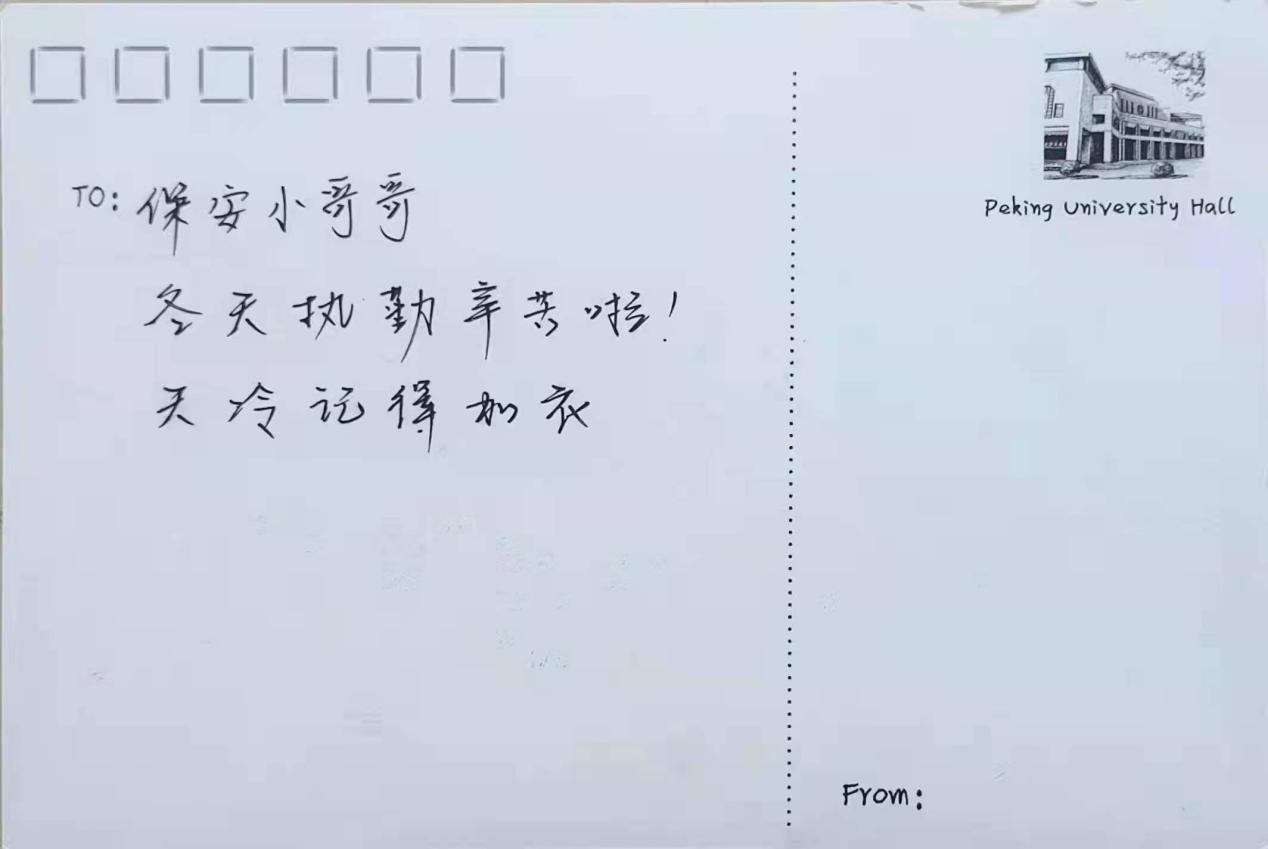 TO: 保安小哥哥
冬天执勤辛苦啦！
天冷记得加衣
Peking University Hall
From: